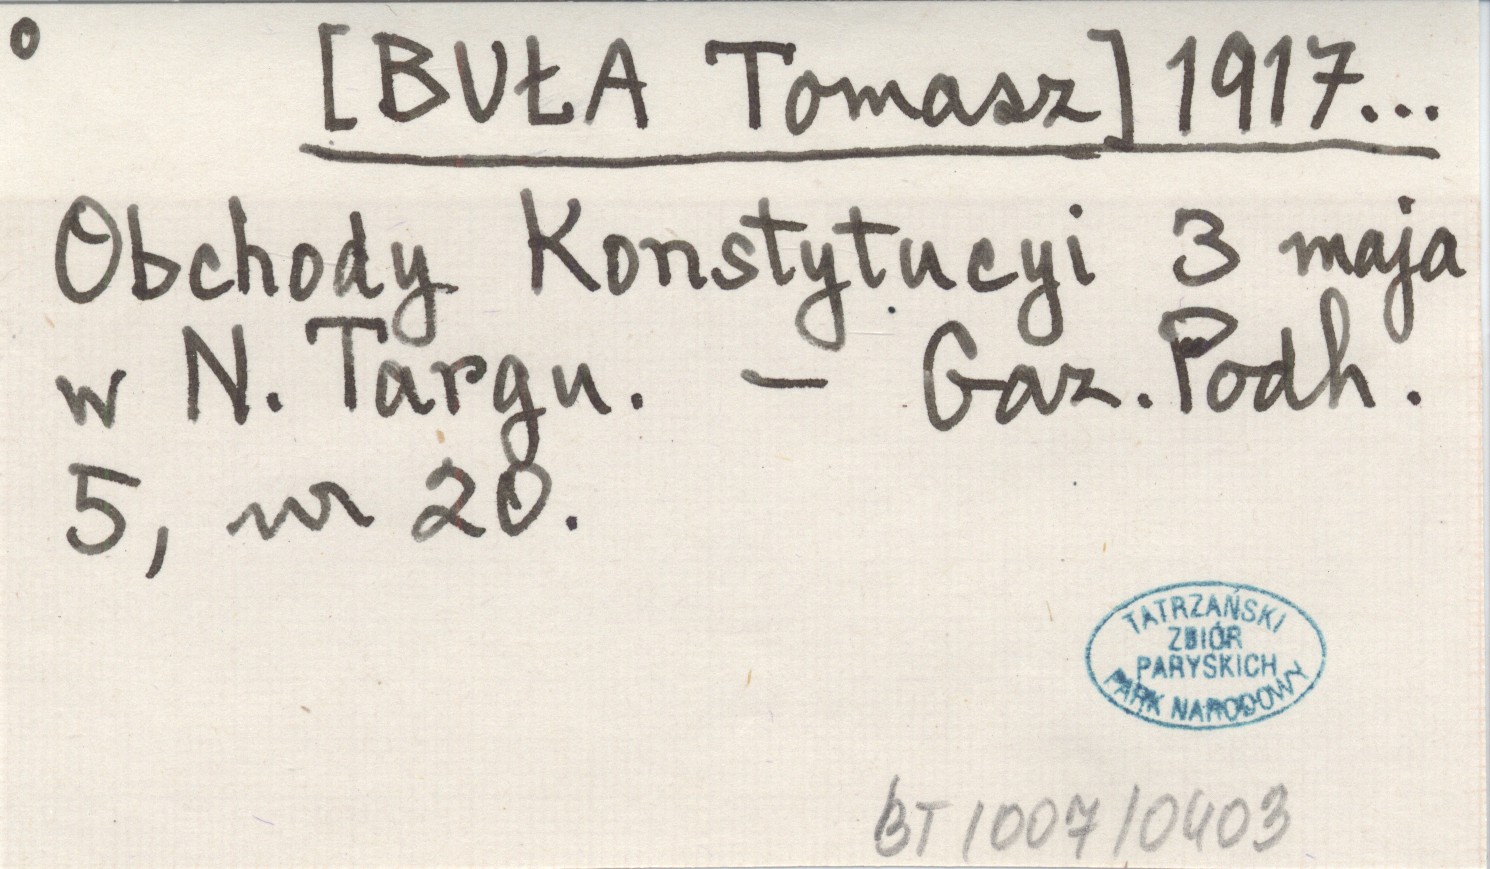 o
[BUŁA Tomasz] 1917...
Obchody Konstytucyi 3 maja
w N. Targu. – Gaz. Podh.
5, nr 20.
TATRZAŃSKI
ZBIÓR
PARYSKICH
PARK NARODOWY
BT 1007/0403